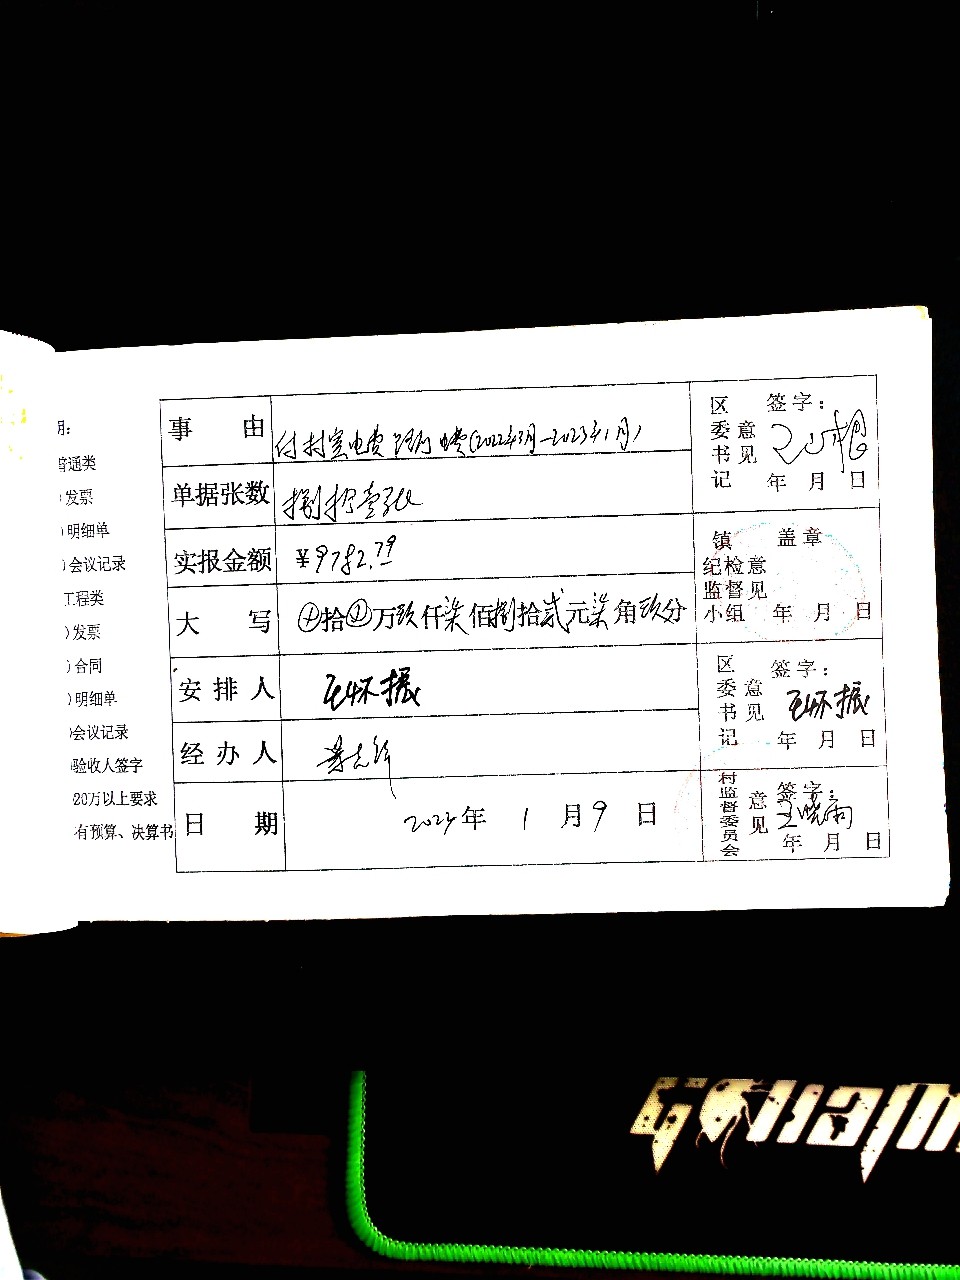 明:
普通类
)发票
)明细单
)会议记录
工程类
)发票
)合同
)明细单
)会议记录
)验收人签字
20万以上要求
有预算、决算书
事由
付村室电费 路灯电费(2022年3月-2023年1月)
单据张数
捌拾壹张
实报金额
¥9782.79
大写
拾万玖仟柒佰捌拾贰元柒角玖分
安排人
王怀振
经办人
日期
2024年1月9日
区委书记意见
签字:
年月日
镇纪检监督小组意见
盖章
年月日
区委书记意见
签字:
王怀振
年月日
村监督委员会意见
签字:
王晓雨
年月日